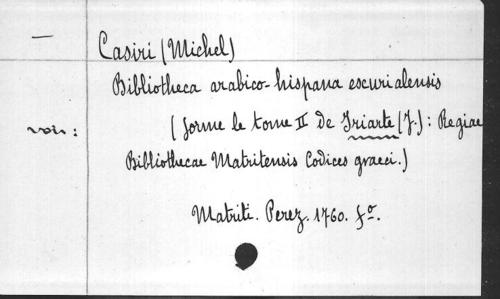 —
Casiri (Michel)
Bibliotheca arabico-hispana escurialensis
voir : (forme le tome II de Iriarte (J.) : Regiae
Bibliothecae Matritensis Codices graeci.)
Matriti. Perez. 1760. fo.